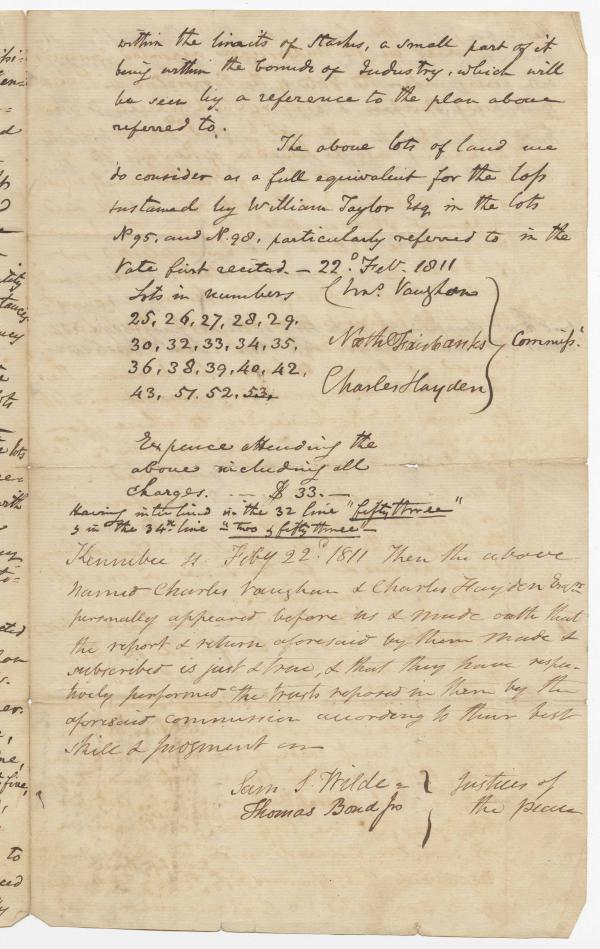 within the limits of Starks, a small part of it
being within the bounds of Industry, which will
be seen by a reference to the plan above
referred to.
The above lots of land we
do consider as a full equivalent for the loss
sustained by William Taylor Esq. in the lots
No 95. and No. 98. particularly referred to in the
Vote first recited. – 22d. Feb. 1811
Lots in numbers
25, 26, 27, 28, 29.
30, 32, 33, 34, 35,
36, 38, 39, 40, 42,
43, 51. 52. 53.
Chas. Vaughan
Nathl Fairbanks
Charles Hayden
Commissrs.
Expence attending the
above including all
charges. — $ 33. —
Having interlined in the 32 line "fifty three"
& in the 34th line "two & fifty three"
Kennebec ss. Feby 22d. 1811 Then the above
named Charles Vaughan & Charles Hayden Esqrs
personally appeared before us & made oath that
the report & return aforesaid by them made &
subscribed is just & true, & that they have respec-
tively performed the trusts reposed in them by the
aforesaid commission according to their best
skill & judgment
Sam S. Wilde
Thomas Bond Jr
Justices of
the peace